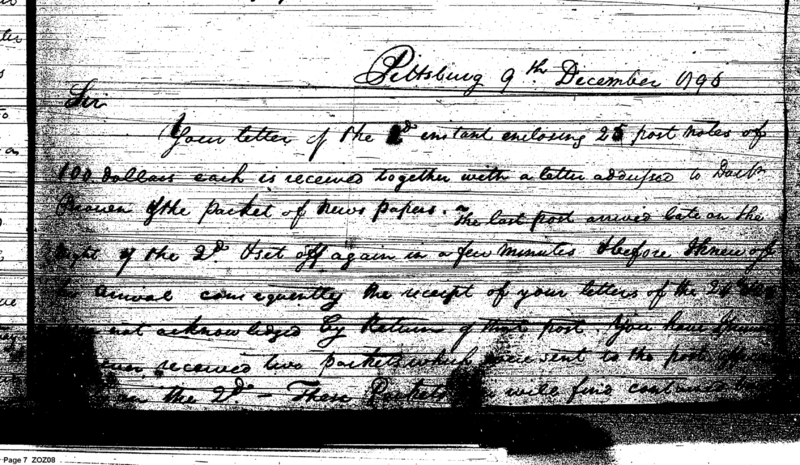 Pittsburg 9th December 1795
Sir
Your letter of the 2d instant enclosing 25 post notes of
100 dollars each is received together with a letter addressed to Doctr
of the packet of news papers. The last post arrived late on the
night of the 2d & set off again in a few minutes & before I knew of
arrival consequently the receipt of your letters of the
not acknowledged by Return of that post. You have
received two packets which were sent to the post office
on the 2d - These Packets will find contained
Page 7 ZOZ08